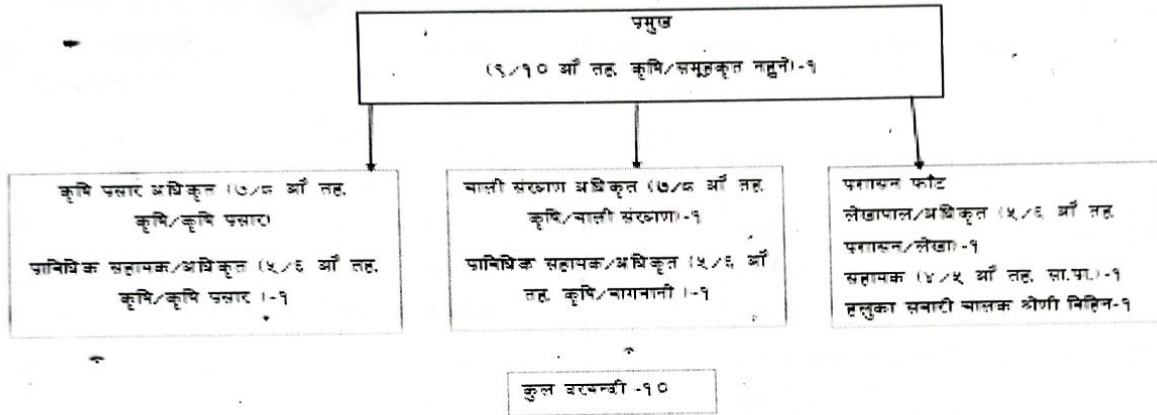 प्रमुख
(९/१० औं तह, कृषि/समूहकृत नहुने)-१
कृषि प्रसार अधिकृत (७/८ औं तह,
कृषि/कृषि प्रसार)
प्राविधिक सहायक/अधिकृत (५/६ औं तह,
कृषि/कृषि प्रसार )-१
बाली संरक्षण अधिकृत (७/८ औं तह,
कृषि/बाली संरक्षण)-१
प्राविधिक सहायक/अधिकृत (५/६ औं
तह, कृषि/बागवानी )-१
प्रशासन फाँट
लेखापाल/अधिकृत (५/६ औं तह,
प्रशासन/लेखा)-१
सहायक (४/५ औं तह, सा.प्र.)-१
हलुका सवारी चालक श्रेणी विहिन-१
कुल दरबन्दी -१०